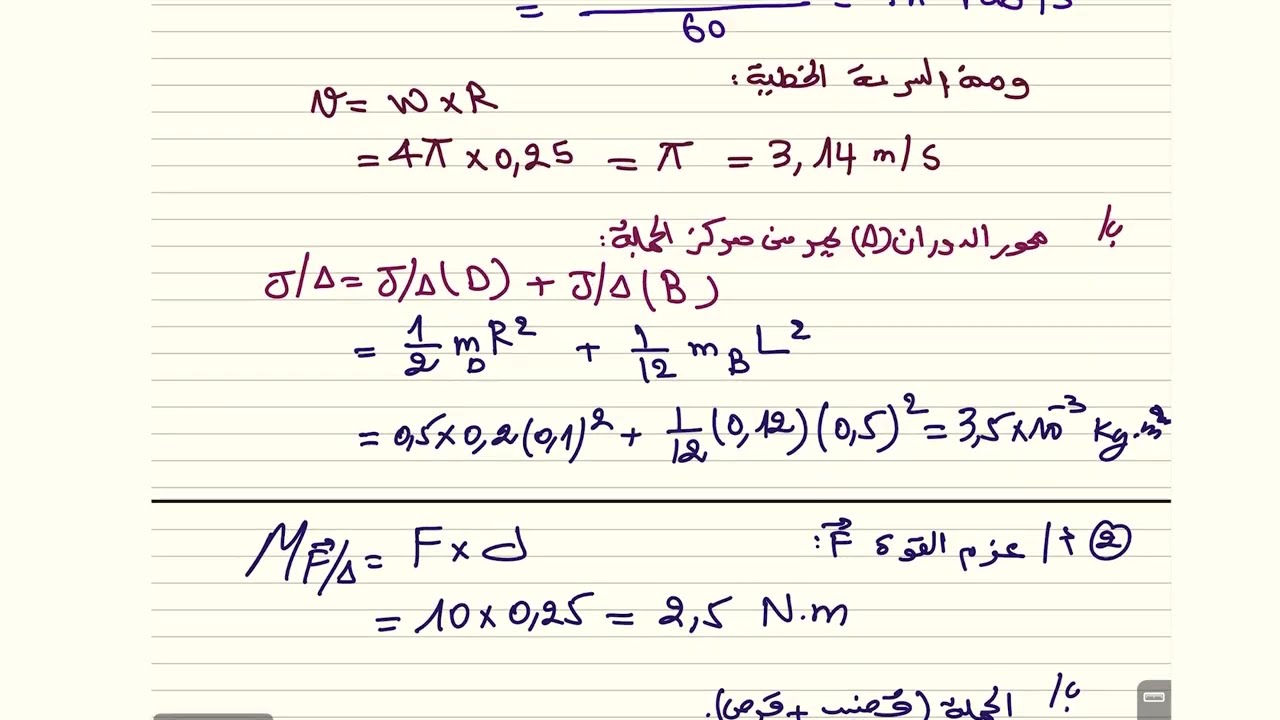 = 60
ومنه السرعة الخطية:
v = w × R
= 4π × 0,25 = π = 3,14 m/s
ب/ محور الدوران (Δ) يمر من مركز الجملة:
J/Δ = J/Δ(D) + J/Δ(B)
= 1/2 m_D R² + 1/12 m_B L²
= 0,5 × 0,2 (0,1)² + 1/12 (0,12)(0,5)² = 3,5 × 10⁻³ Kg.m²
② أ/ عزم القوة F⃗:
M_F⃗/Δ = F × d
= 10 × 0,25 = 2,5 N.m
ب/ الجملة (قضيب + قرص).